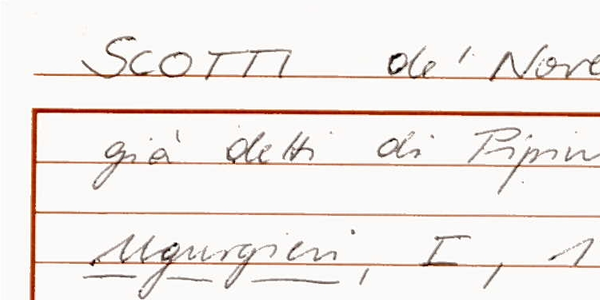 SCOTTI de' Nove
già detti di Pipin
Ugurgieri, I, 1